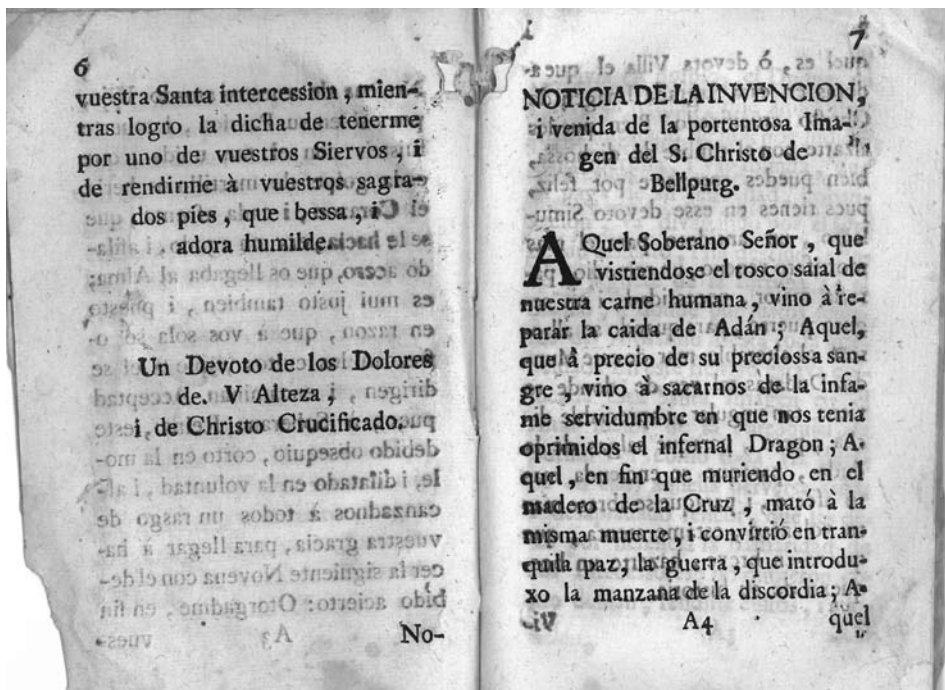 6
vuestra Santa intercession, mien-
tras logro la dicha de tenerme
por uno de vuestros Siervos, i
de rendirme à vuestros sagra-
dos pies, que bessa, i
adora humilde.
Un Devoto de los Dolores
de. V Alteza,
i, de Christo Crucificado.
No-
7
NOTICIA DE LA INVENCION,
i venida de la portentosa Ima-
gen del S. Christo de
Bellpurg.
AQuel Soberano Señor, que
vistiendose el tosco saial de
nuestra carne humana, vino à re-
parar la caida de Adán; Aquel,
que à precio de su preciossa san-
gre, vino à sacarnos de la infa-
me servidumbre en que nos tenia
oprimidos el infernal Dragon; A-
quel, en fin que muriendo en el
madero de la Cruz, mató à la
misma muerte, i convirtió en tran-
quila paz, la guerra, que introdu-
xo la manzana de la discordia; A-
A4
quel